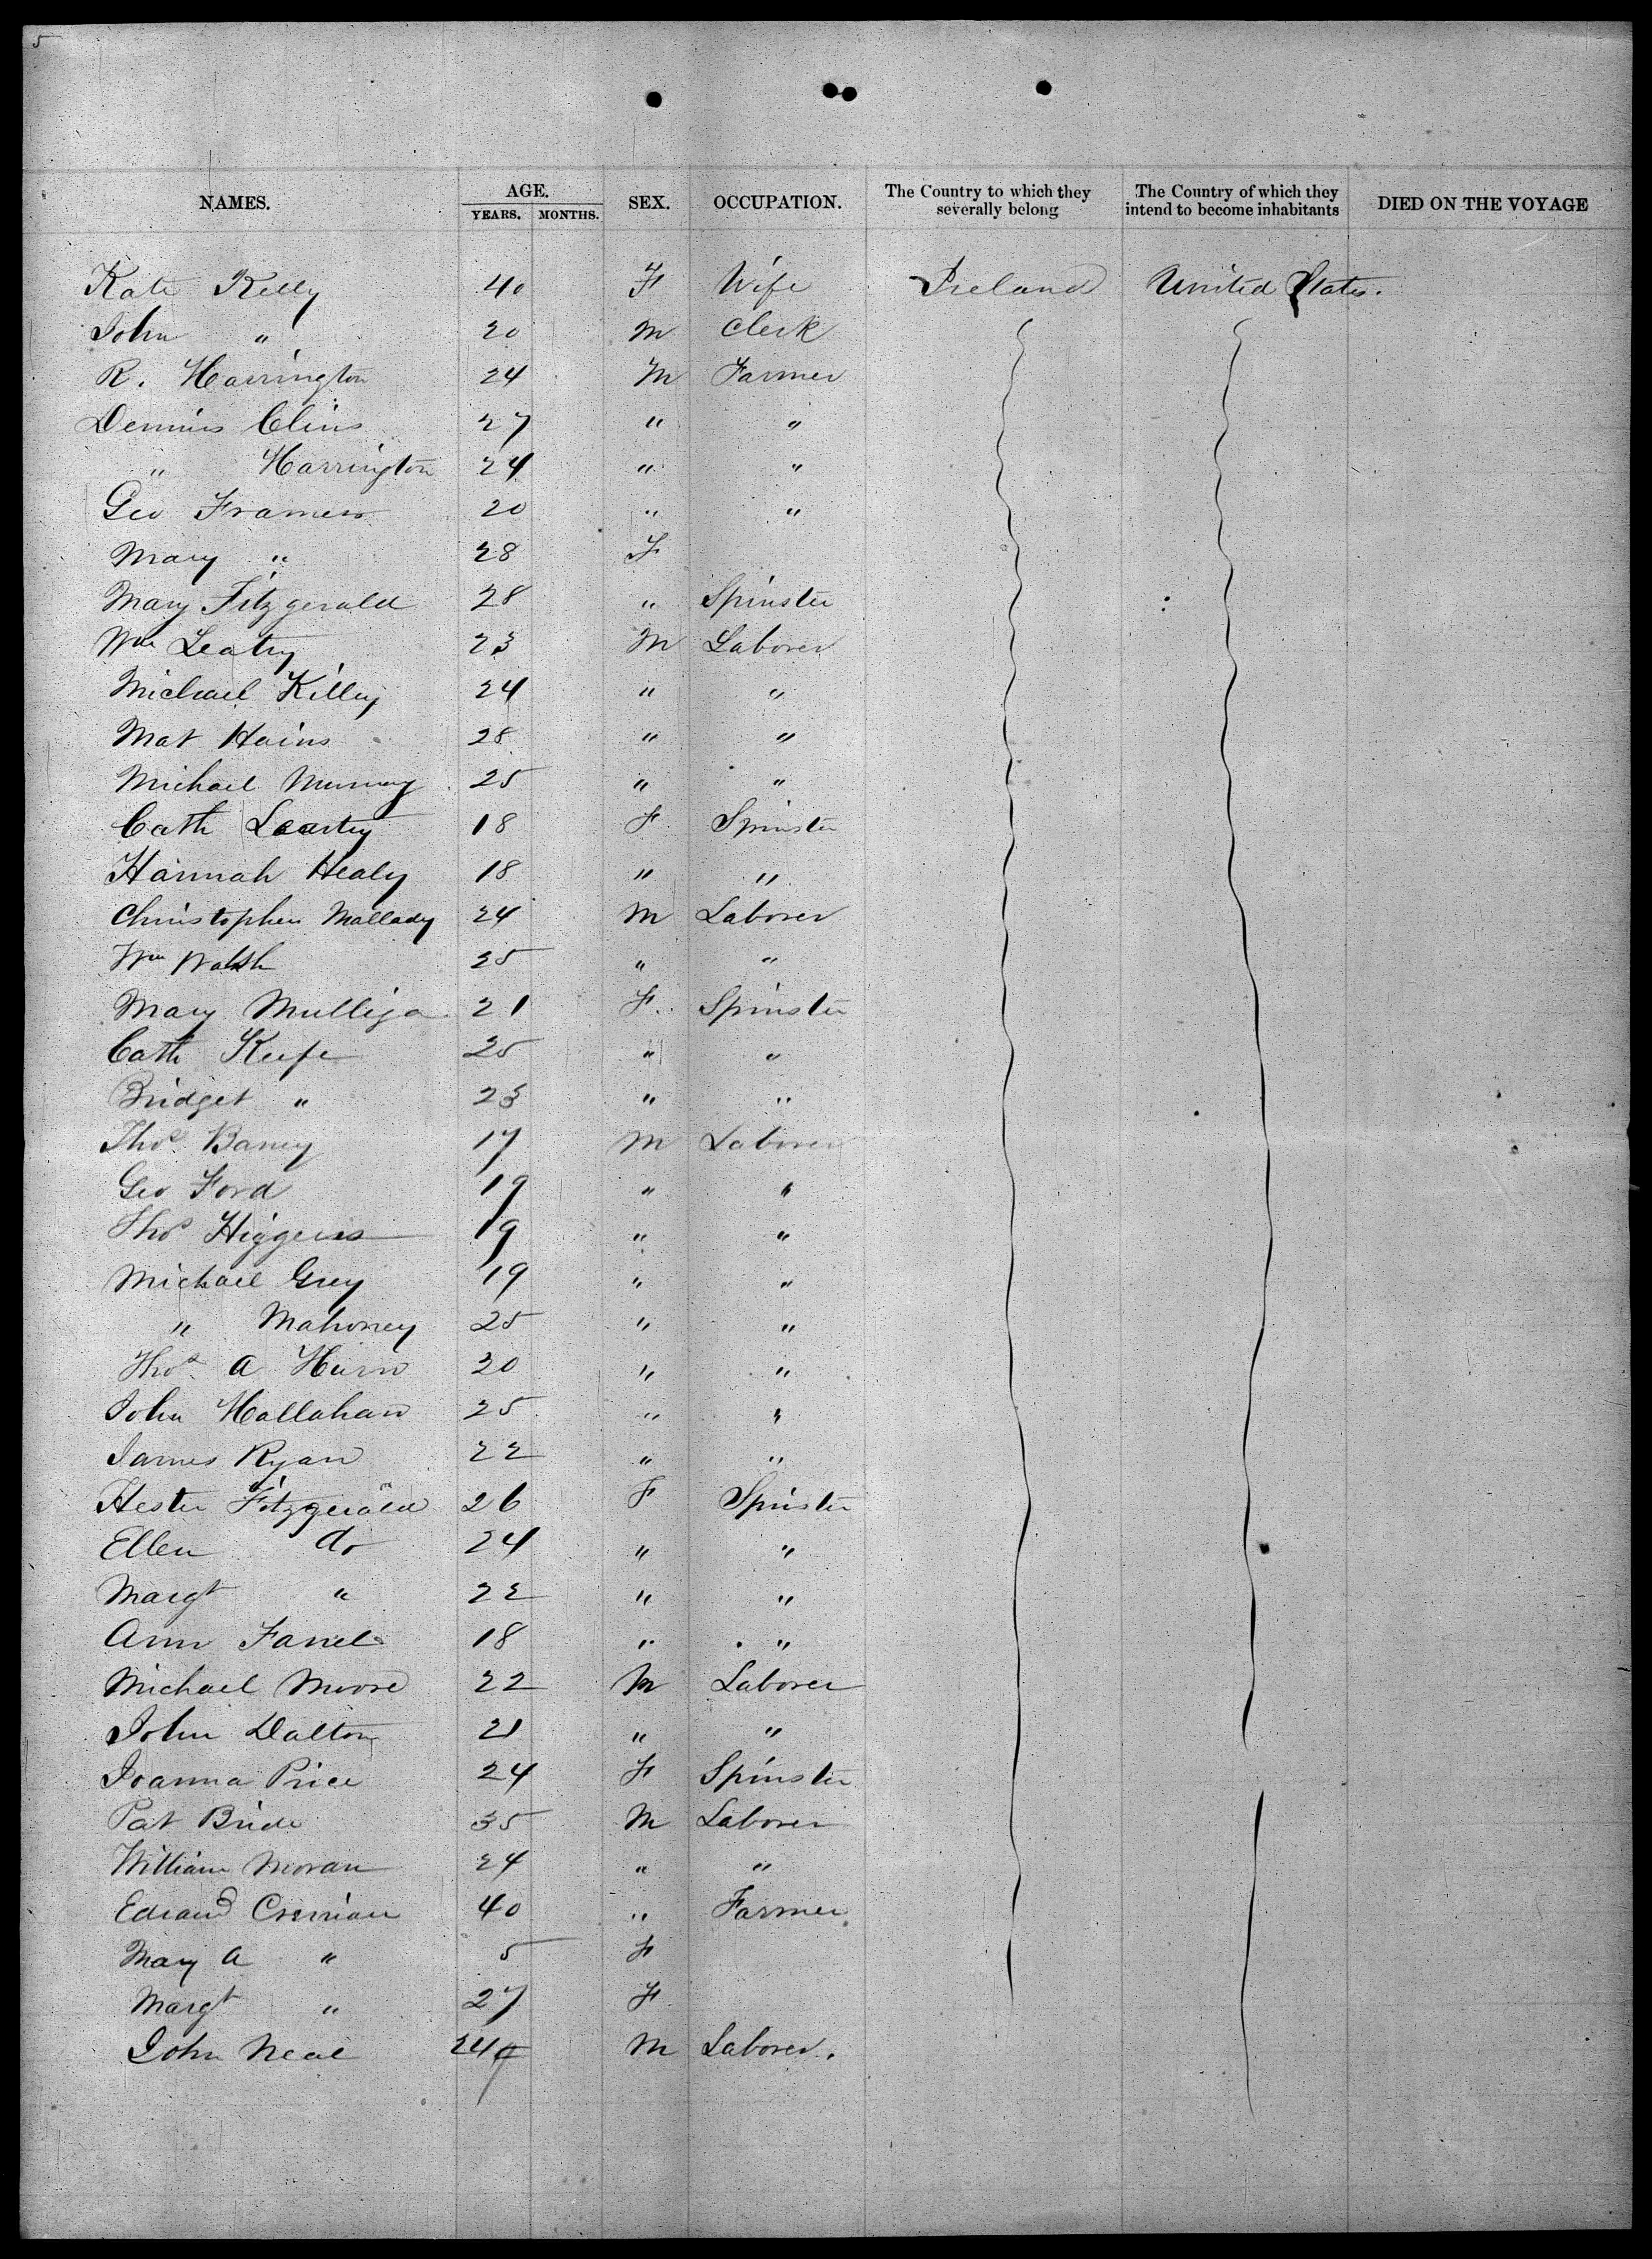 5
NAMES. AGE. YEARS. MONTHS. SEX. OCCUPATION. The Country to which they severally belong The Country of which they intend to become inhabitants DIED ON THE VOYAGE
Kate Kelly 40 F Wife Ireland United States.
John " 20 M Clerk
R. Harrington 24 M Farmer
Dennis Clins 27 " "
" Harrington 24 " "
Geo 20 " "
Mary " 28 F
Mary Fitzgerald 28 " Spinster
Wm Leatry 23 M Laborer
Michael Killey 24 " "
Mat Hains 28 " "
Michael 25 " "
Cath 18 F Spinster
Hannah Healy 18 " "
Christopher Mallady 24 M Laborer
Wm Walsh 25 " "
Mary Mulliga 21 F. Spinster
Cath Keefe 25 " "
Bridget " 23 " "
Thos Barney 17 M Laborer
Geo Ford 19 " "
Thos Higgens 19 " "
Michael Grey 19 " "
" Mahoney 25 " "
Thos A Hurn 20 " "
John Hallahan 25 " "
James Ryan 22 " "
Hester Fitzgerald 26 F Spinster
Ellen do 24 " "
Margt " 22 " "
Ann 18 " "
Michael Moore 22 M Laborer
John Dalton 21 " "
Joanna Price 24 F Spinster
Pat Bride 35 M Laborer
William Moran 24 " "
Edward 40 " Farmer
Mary A " 5 F
Margt " 27 F
John Neal 24 M Laborer.